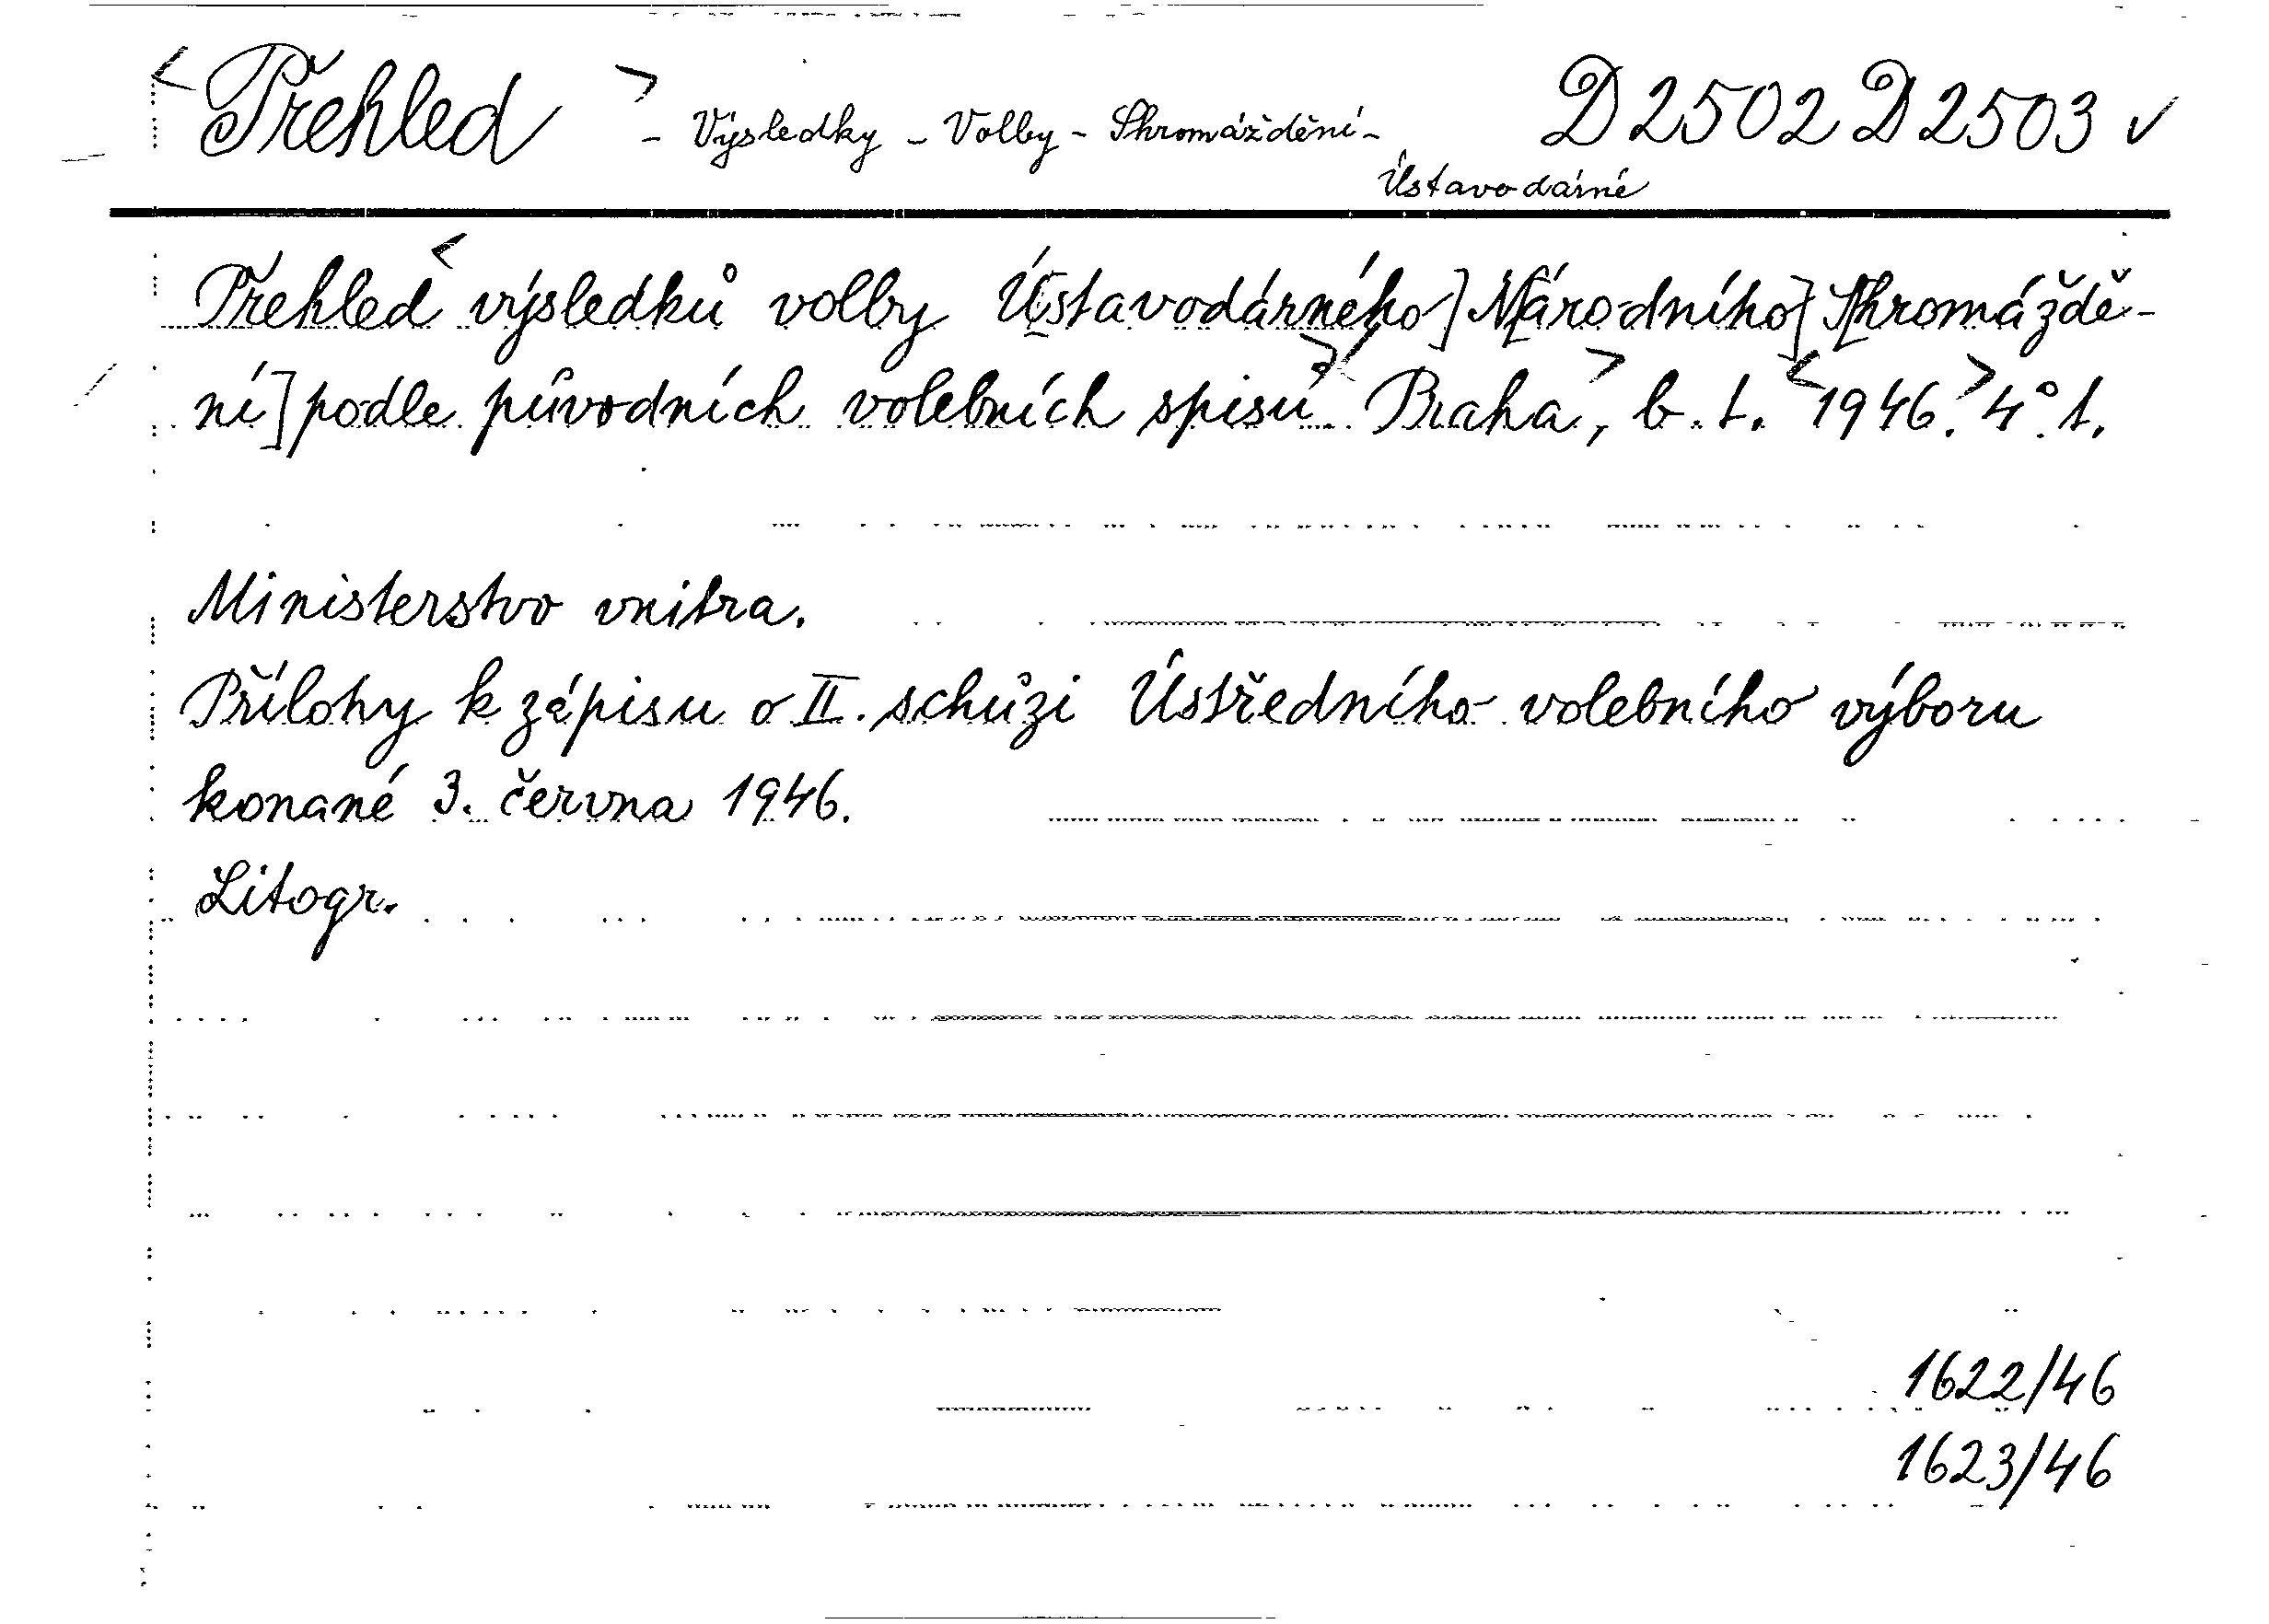 <Přehled> - Výsledky - Volby - Shromáždění - D 2502 D 2503 ✓
Ústavodárné
Přehled< výsledků volby Ústavodárného] [Národního] [Shromáždě-
ní] podle původních volebních spisů.> Praha,> b. t. <1946.> 4°. t.
Ministerstvo vnitra.
Přílohy k zápisu o II. schůzi Ústředního volebního výboru
konané 3. června 1946.
Litogr.
1622/46
1623/46